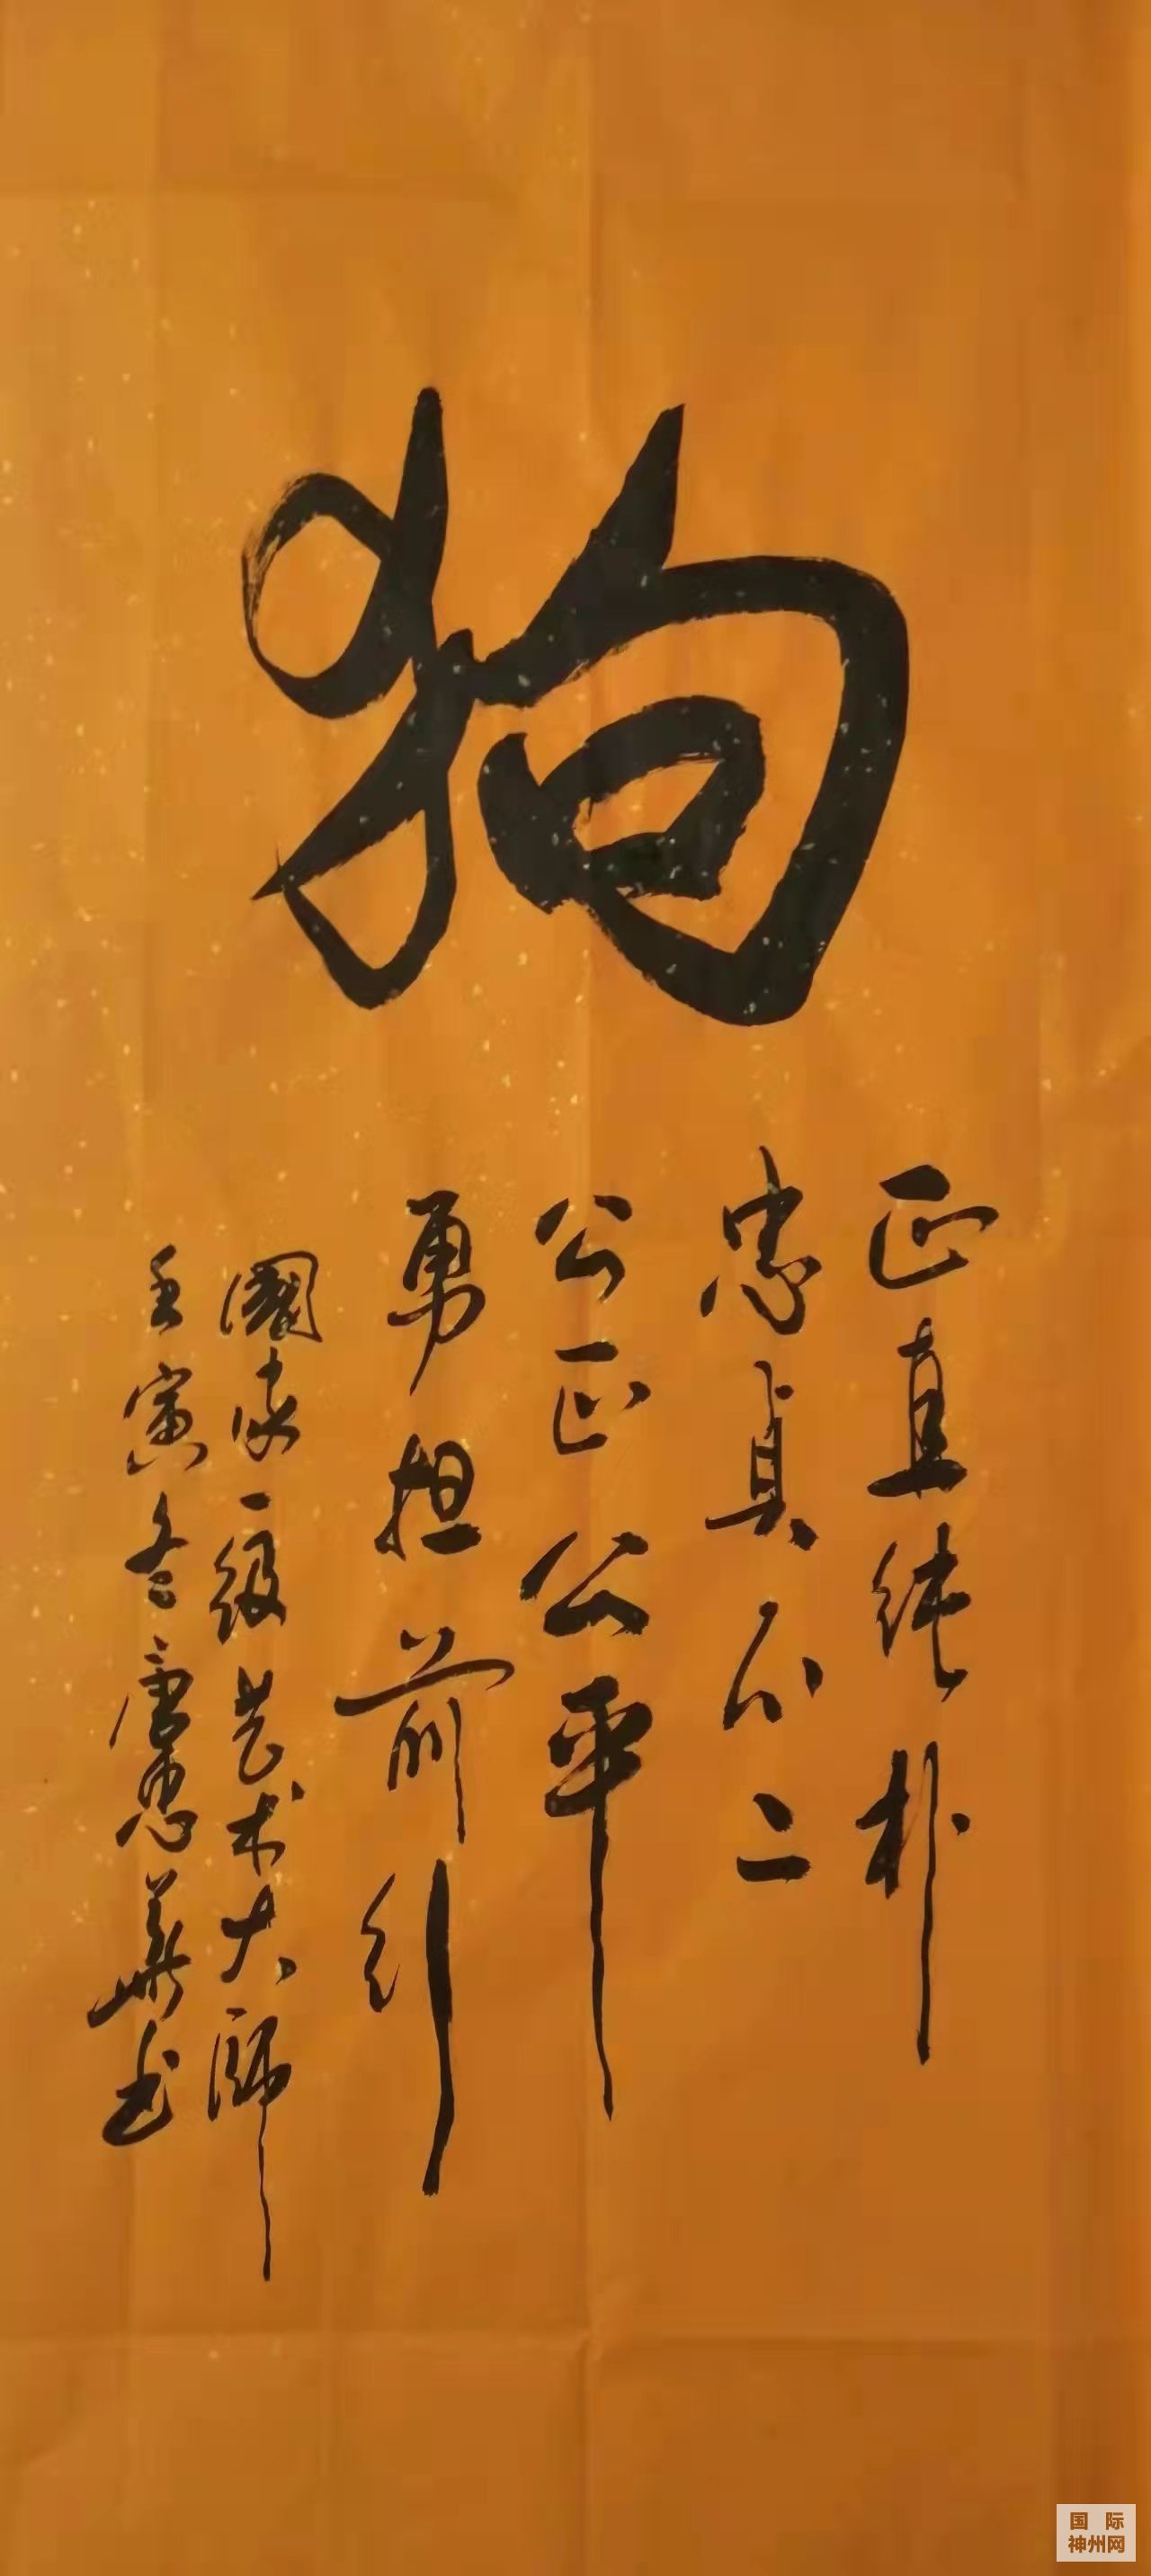 狗
正直纯朴
忠貞不二
公正公平
勇担前行
國家一级艺术大師
壬寅冬唐忠華书
国际
神州网